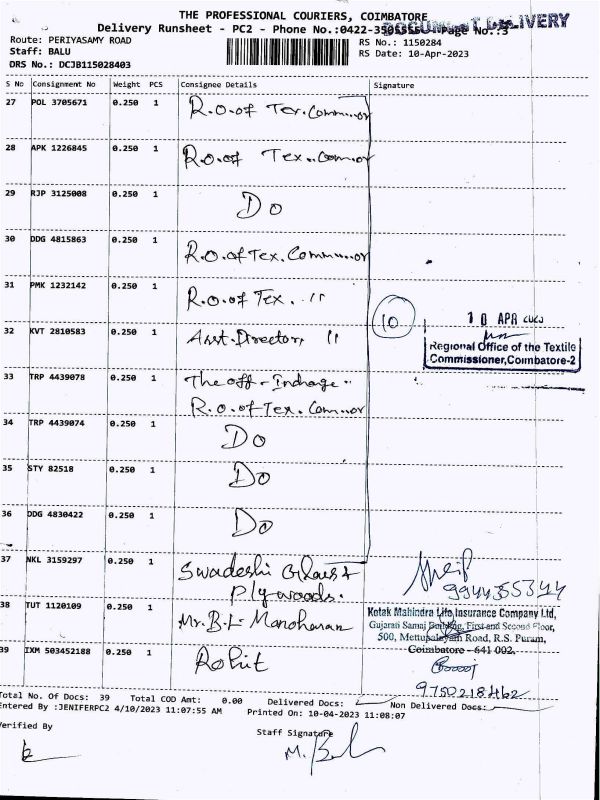 THE PROFESSIONAL COURIERS, COIMBATORE
Delivery Runsheet - PC2 - Phone No.:0422-350 Page No.:3
DOCUMENT DELIVERY
Route: PERIYASAMY ROAD
RS No.: 1150284
Staff: BALU
RS Date: 10-Apr-2023
DRS No.: DCJB115028403
S No Consignment No Weight PCS Consignee Details Signature
27 POL 3705671 0.250 1 R.O.of Tex.Common.or
28 APK 1226845 0.250 1 R.O.of Tex..Com.or
29 RJP 3125008 0.250 1 Do
30 DDG 4815863 0.250 1 R.O.of Tex.Comm...or
31 PMK 1232142 0.250 1 R.O.of Tex. 11
10
10 APR 2023
32 KVT 2810583 0.250 1 Asst.Director, 11
Regional Office of the Textile
Commissioner,Coimbatore-2
33 TRP 4439078 0.250 1 The off-Incharge
R.O.of Tex.Com.or
34 TRP 4439074 0.250 1 Do
35 STY 82518 0.250 1 Do
36 DDG 4830422 0.250 1 Do
37 NKL 3159297 0.250 1 Swadeshi Glass &
Plywoods.
38 TUT 1120109 0.250 1 Mr.B.L. Manoharan
Kotak Mahindra Life Insurance Company Ltd,
Gujarati Samaj Building, First and Second Floor,
500, Mettupalayam Road, R.S. Puram,
Coimbatore - 641 002.
39 IXM 503452188 0.250 1 Rohit
Total No. Of Docs: 39 Total COD Amt: 0.00 Delivered Docs: Non Delivered Docs:
Entered By :JENIFERPC2 4/10/2023 11:07:55 AM Printed On: 10-04-2023 11:08:07
Verified By
Staff Signature